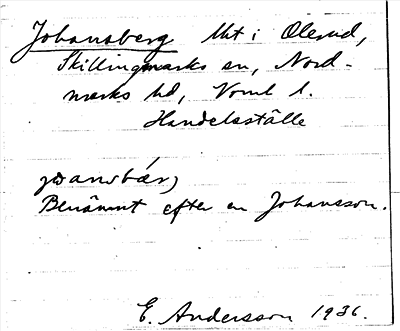 Johansberg Uht i Olerud,
Skillingmarks sn, Nord-
marks hd, Värml l.
Handelsställe
Benämnt efter en Johansson.
E. Andersson 1936.